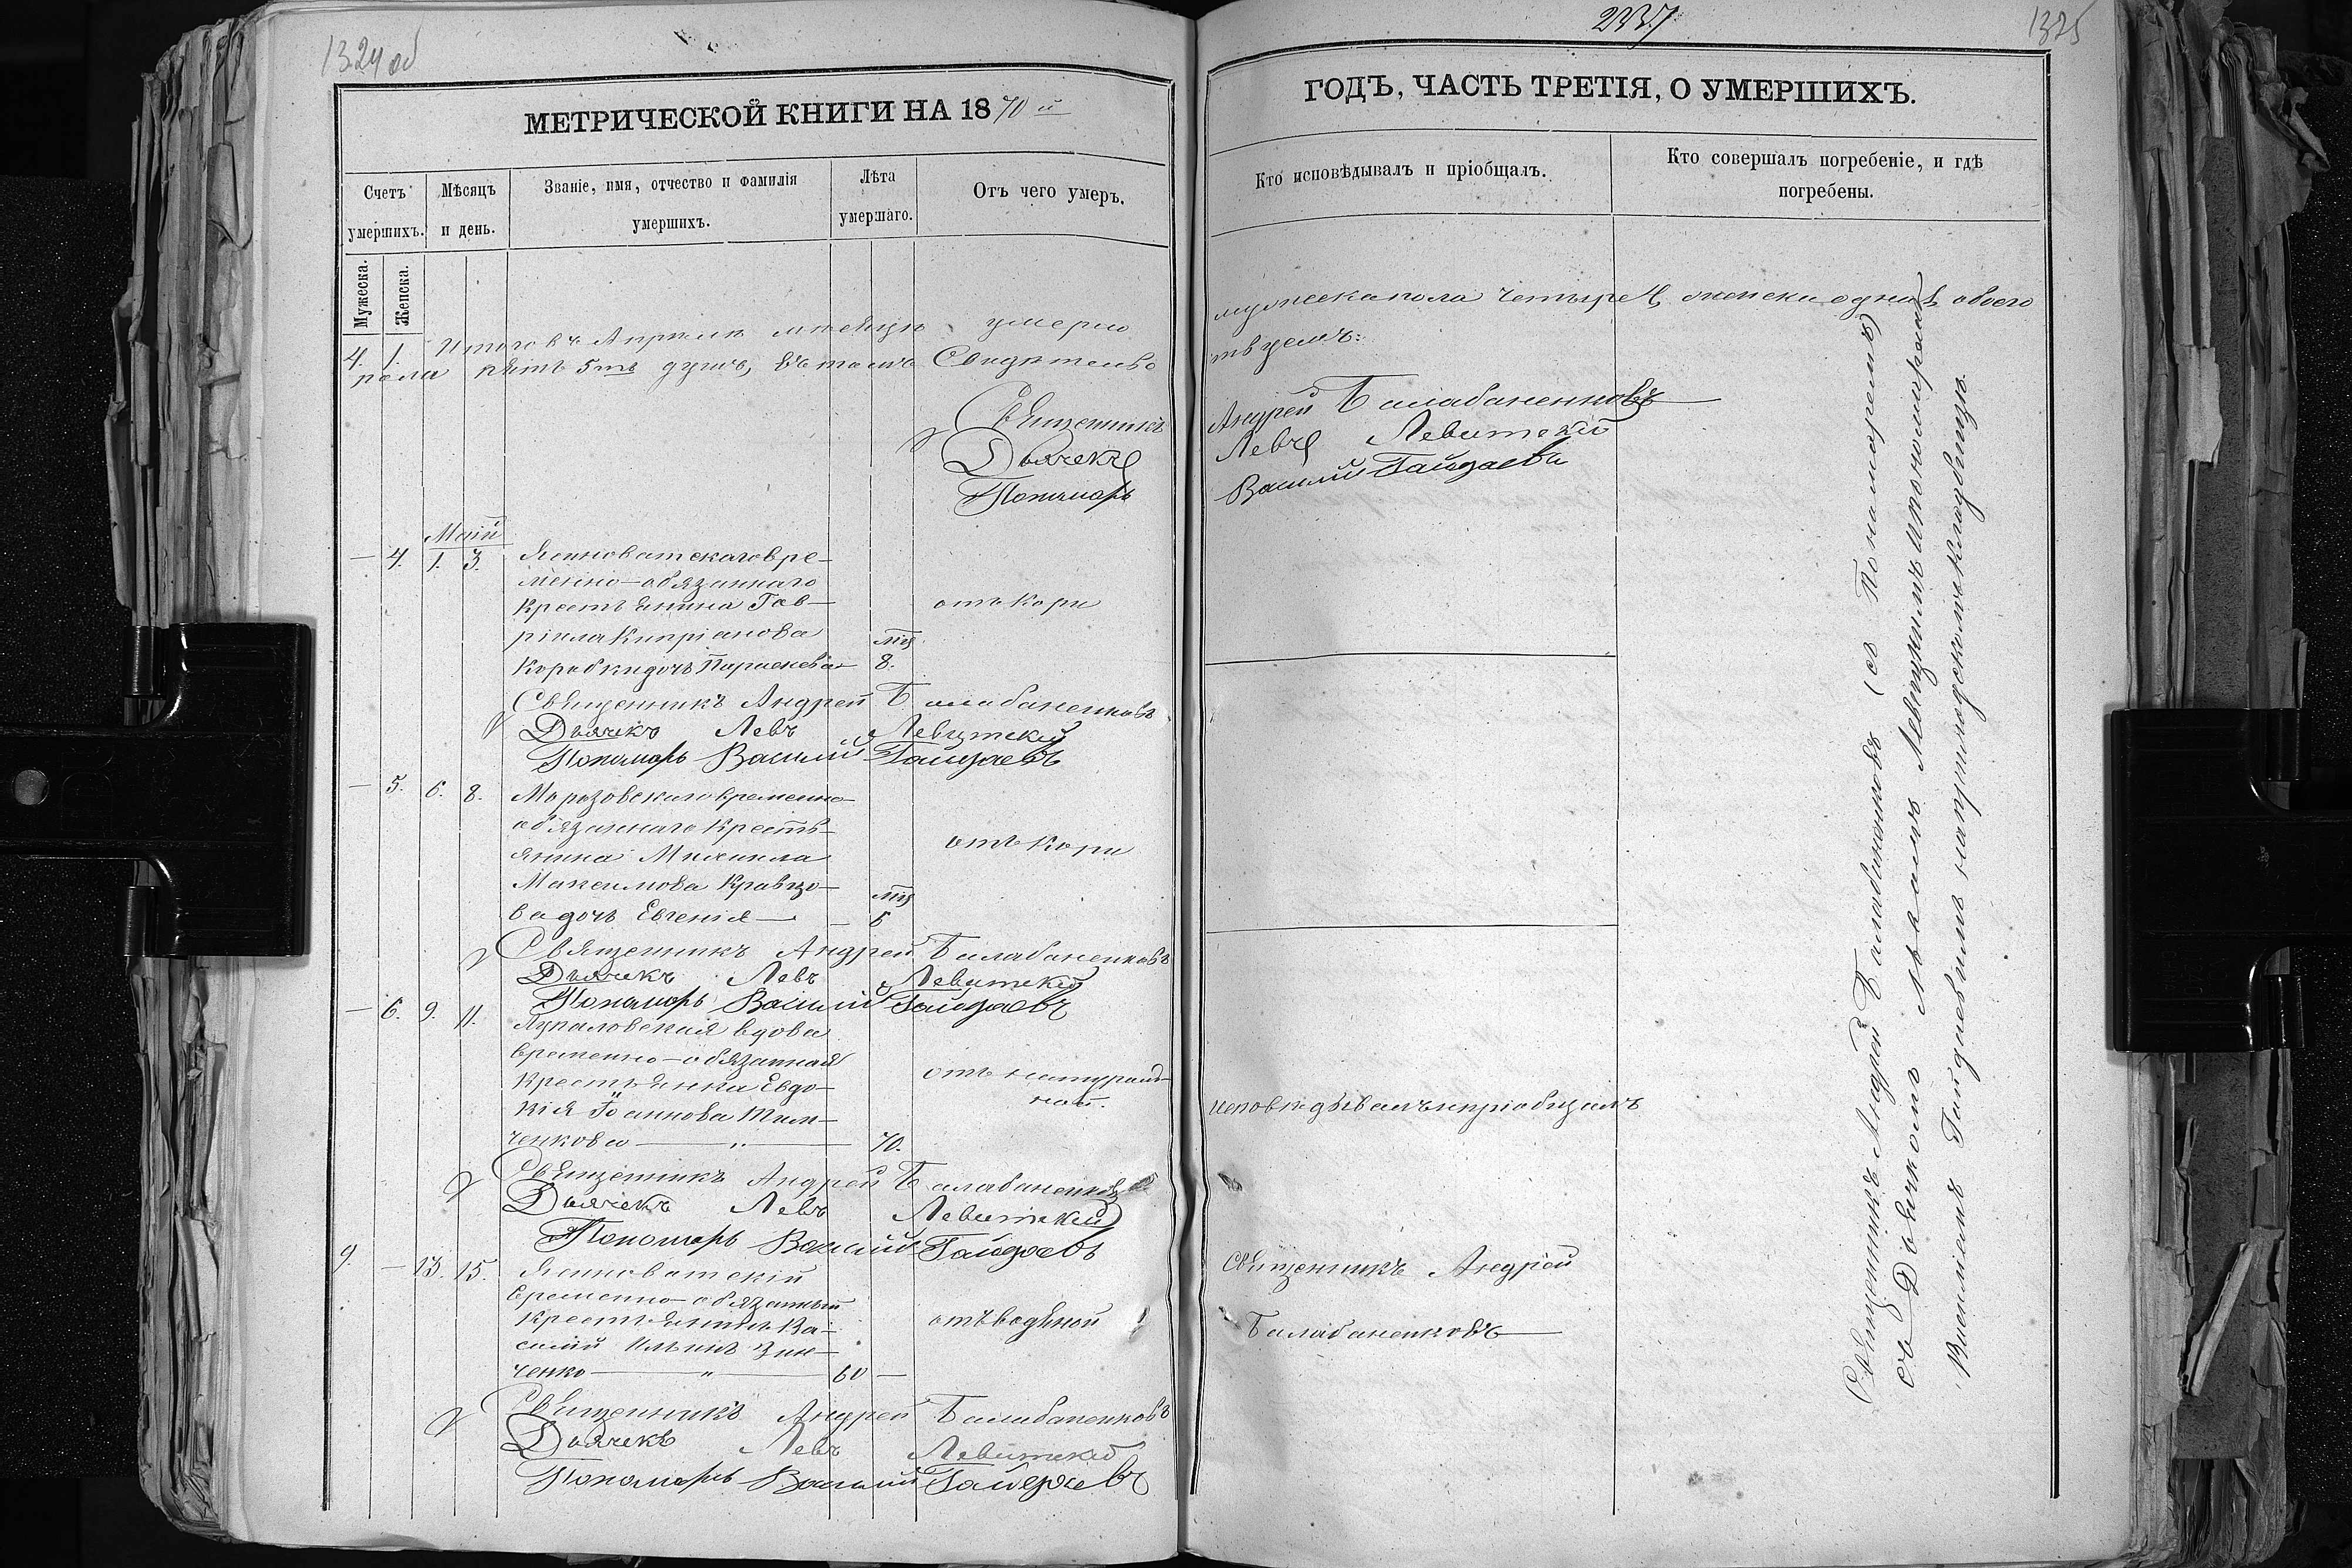 1324 об
МЕТРИЧЕСКОЙ КНИГИ НА 1870 й
Счетъ умершихъ.
Мужеска.
Женска.
Мѣсяцъ и день.
Званіе, имя, отчество и фамилія умершихъ.
Лѣта умершаго.
Отъ чего умеръ.
4. 1. Итого въ Апрѣлѣ мѣсяцѣ умерло
пола пять 5ть душъ, въ томъ Свидѣтельс
Священникъ
Дьячекъ
Пономарь
Маій
— 4. 1. 3. Ясиноватскаго вре-
менно-обязаннаго
Крестьянина Гав-
ріила Кипріанова
Коробки дочь
лѣтъ
8.
отъ кори
Священникъ Андрей Балабаненковъ
Дьячекъ Левъ Левитскій
Пономарь Василій Гайдаевъ
— 5. 6. 8. временно-
обязаннаго Кресть-
янина Михаила
Максимова Кравцо-
ва дочь Евгенія —
отъ кори
Священникъ Андрей Балабаненковъ
Дьячекъ Левъ Левитскій
Пономарь Василій Гайдаевъ
— 6. 9. 11. вдова
временно-обязанная
Крестьянка Евдо-
кія Іоаннова Тим-
ченкова — „ — 70.
отъ натураль-
ной.
Священникъ Андрей Балабаненковъ
Дьячекъ Левъ Левитскій
Пономарь Василій Гайдаевъ
9. — 13. 15. Ясиноватскій
временно-обязанный
Крестьянинъ Ва-
силій Ильинъ Зин-
ченко — „ — 60 —
отъ водяной
Священникъ Андрей Балабаненковъ
Дьячекъ Левъ Левитскій
Пономарь Василій Гайдаевъ
2337
1325
ГОДЪ, ЧАСТЬ ТРЕТІЯ, О УМЕРШИХЪ.
Кто исповѣдывалъ и пріобщалъ.
Кто совершалъ погребеніе, и гдѣ погребены.
мужеска пола четыре 4, женска одна 1, обоего
твуемъ:
Андрей Балабаненковъ
Левъ Левитскій
Василій Гайдаевъ
исповѣдывалъ и пріобщалъ
Священникъ Андрей
Балабаненковъ
Священникъ Андрей Балабаненковъ (съ Понамаремъ)
съ Дьячкомъ Львомъ Левицкимъ и пономаремъ
Василіемъ Гайдаевымъ на приходскомъ кладбищѣ.